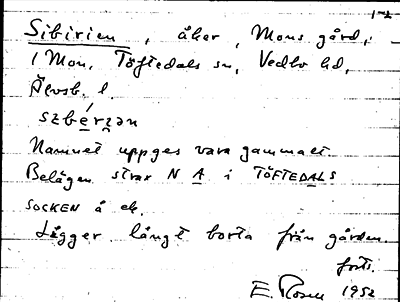 1-2
Sibirien, åker, Mons gård,
i Mon, Töftedals sn, Vedbo hd,
Älvsb. l.
Namnet uppges vara gammalt.
Belägen strax N A i TÖFTEDALS
SOCKEN å ek.
Ligger långt borta från gården.
forts.
E. Rosen 1952